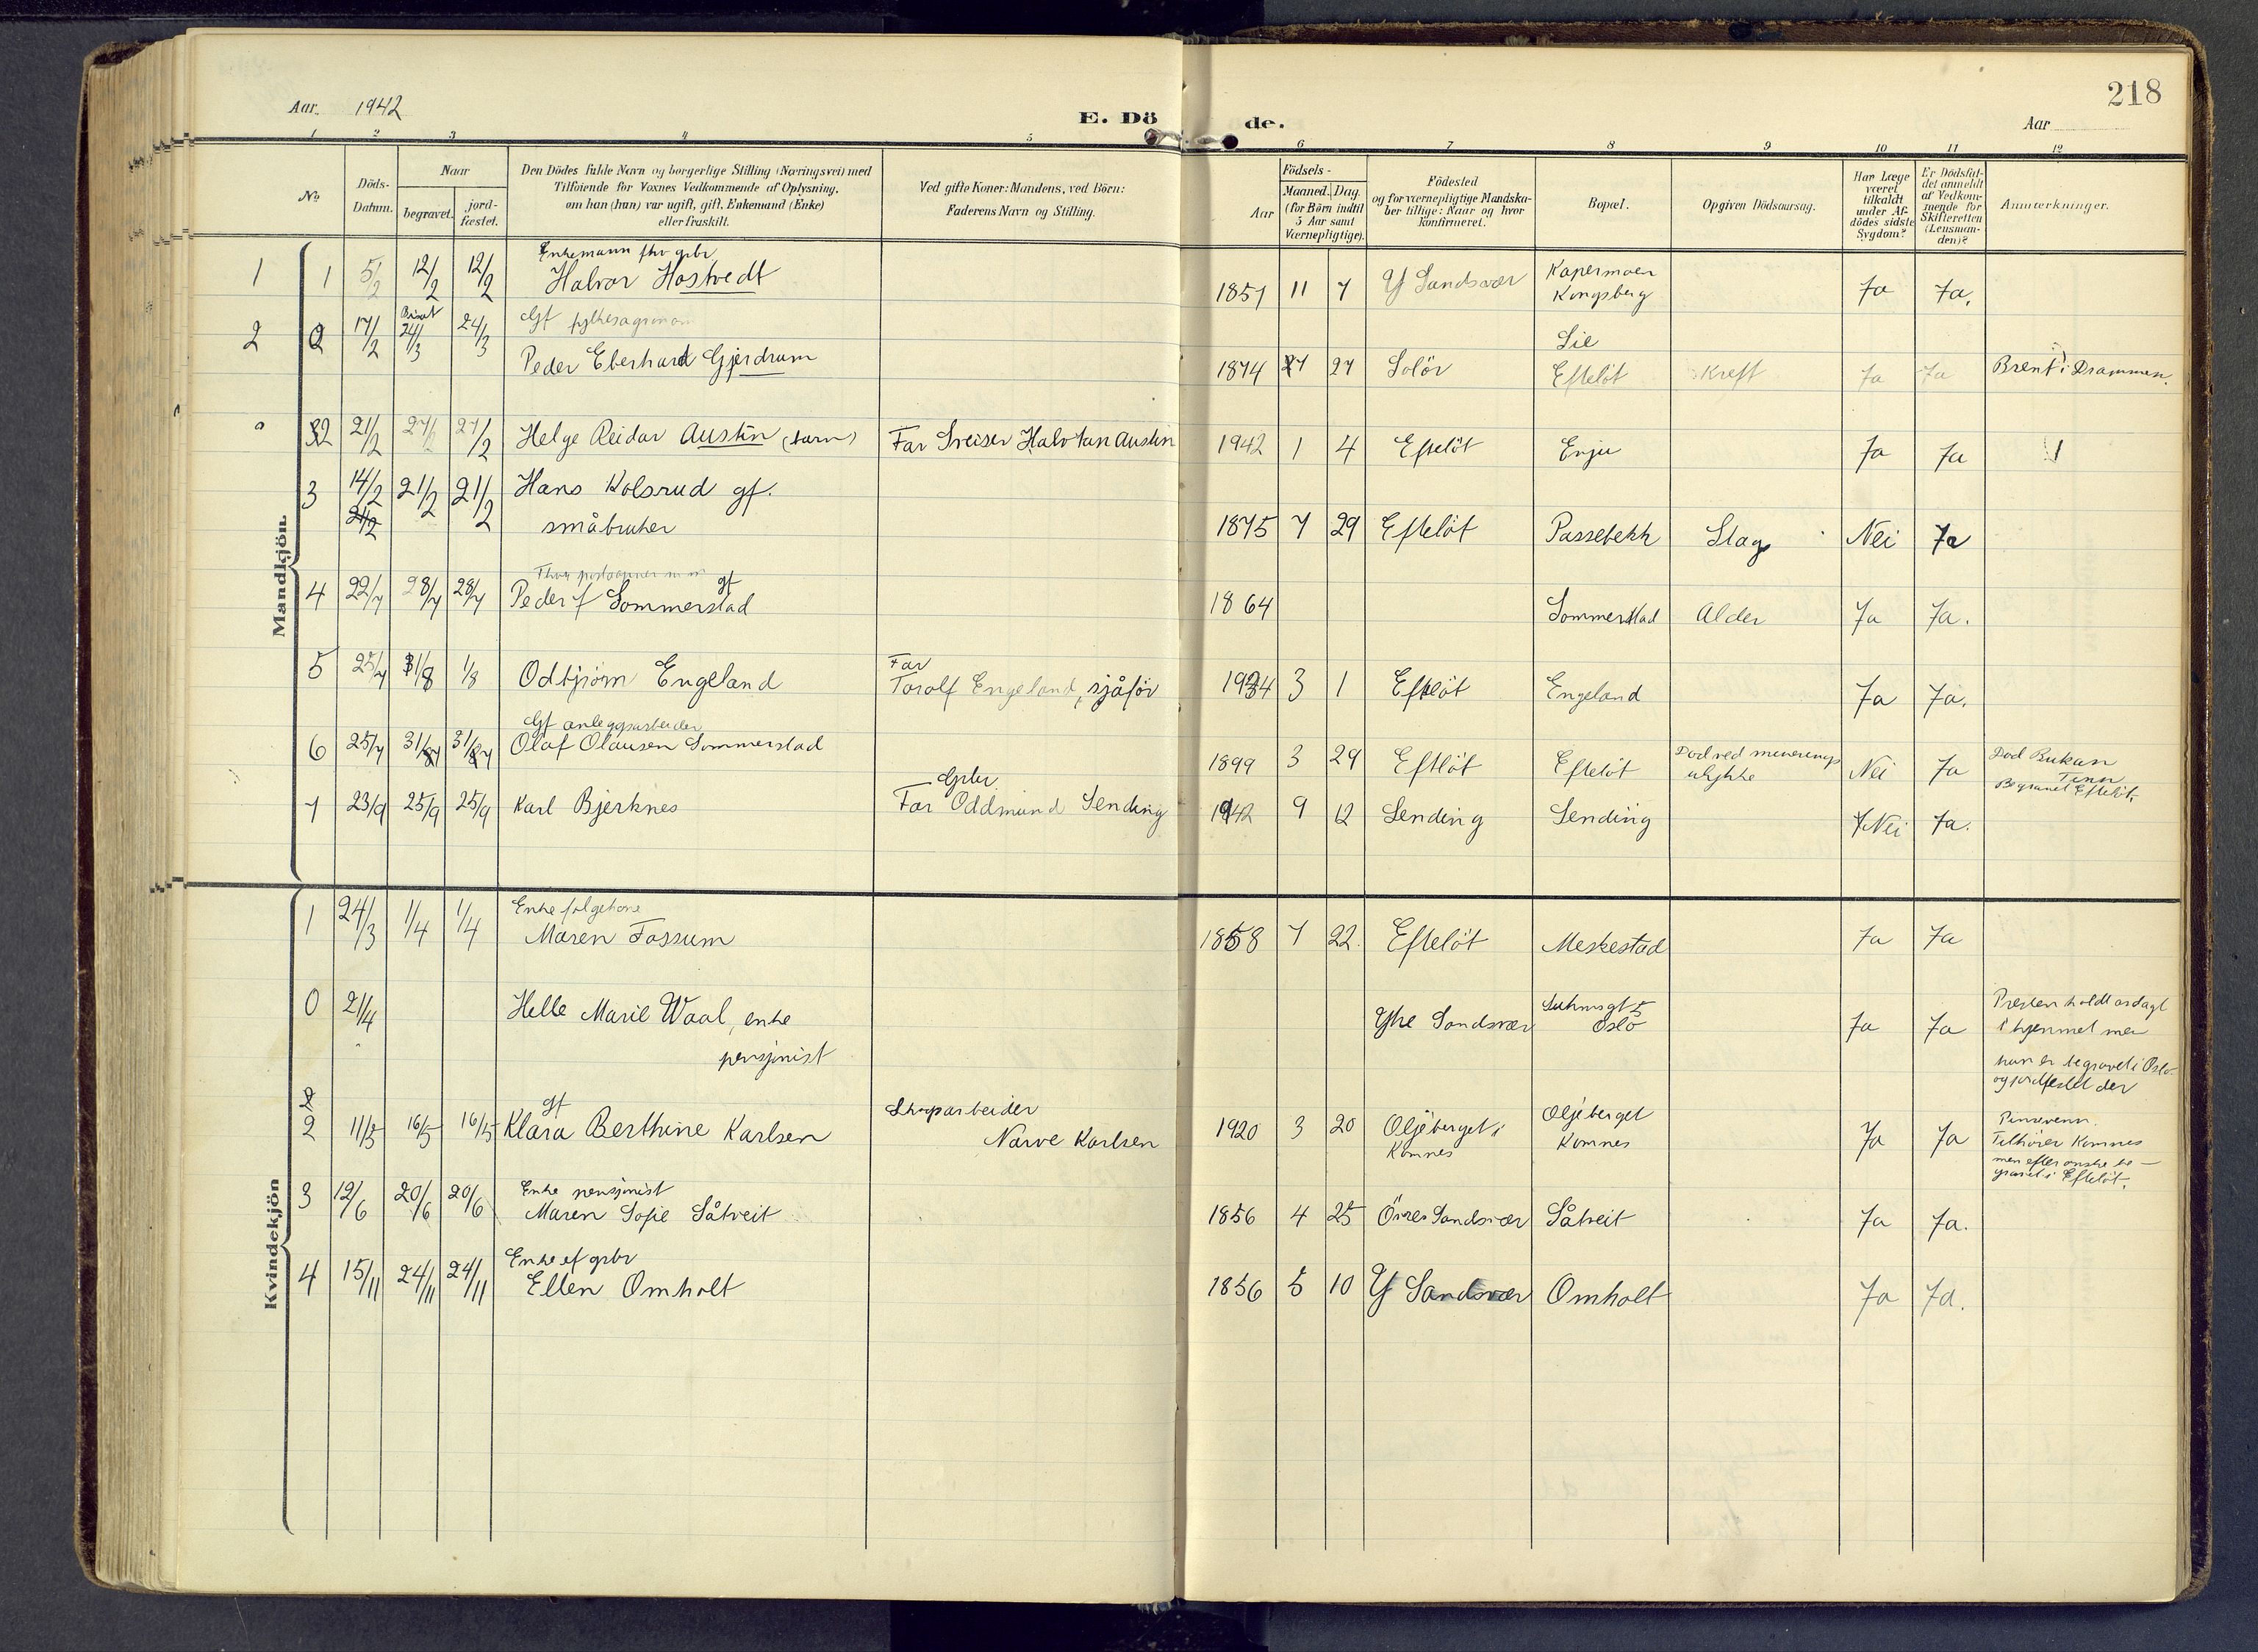 218
Aar. 1942
E. Dö de.
Aar
1 2 3 4 5 6 7 8 9 10 11 12
No
Döds-Datum.
Naar
begravet. jord-fæstet.
Den Dödes fulde Navn og borgerlige Stilling (Næringsvei) med
Tilföiende for Voxnes Vedkommende af Oplysning,
om han (hun) var ugift, gift, Enkemand (Enke)
eller fraskilt.
Ved gifte Koner: Mandens, ved Börn:
Faderens Navn og Stilling.
Födsels-
Aar Maaned. Dag.
(for Börn indtil
5 Aar samt
Værnepligtige).
Födested
og for værnepligtige Mandska-
ber tillige: Naar og hvor
konfirmeret.
Bopæl.
Opgiven Dödsaarsag.
Har Læge
været
tilkaldt
under Af-
dödes sidste
Sygdom?
Er Dödsfal-
det anmeldt
af Vedkom-
mende for
Skifteretten
(Lensman-
den)?
Anmærkninger.
Mandkjön.
Enkemann fhv grbr
1 1 5/2 12/2 12/2 Halvor Hostvedt 1851 11 7 Y Sandsvær Kapermoen Kongsberg Ja Ja.
Gf fylkesagronom
2 2 17/2 24/3 24/3 Peder Eberhard Gjerdrum 1874 27 Solör Lie Efteløt Kreft Ja Ja Brent i Drammen.
2 21/2 27/2 27/2 Helge Reidar Austin (barn) Far Sveiser Halvtan Austin 1942 1 4 Efteløt Enju Ja Ja 1
3 14/2 21/2 21/2 Hans Kolsrud gf.
21/2 småbruker 1875 7 29 Efteløt Passebekk Slag Nei Ja
4 22/7 28/7 28/7 Peder f Sommerstad gf 1864 Sommerstad Alder Ja Ja.
5 25/7 1/8 1/8 Odbjörn Engeland Far Torolf Engeland, sjåför 1934 3 1 Efteløt Engeland Ja Ja.
Gf anleggsarbeider
6 25/7 31/7 31/7 Olaf Olausen Sommerstad 1899 3 29 Efteløt Efteløt Död ved minerings ulykke Nei Ja Död Rukan Tinn Begravet Efteløt.
7 23/9 25/9 25/9 Karl Bjerknes Gbr. Far Oddmund Sending 1942 9 12 Sending Sending Nei Ja.
Kvindekjön
Enke folgekone
1 24/3 1/4 1/4 Maren Fossum 1858 7 22. Efteløt Meskestad Ja Ja
0 21/4 Helle Marie Waal, enke
pensjonist Ytre Sandsvær Oslo Ja Ja Presten holdt andagt
i hjemmet men
hun er begravet i Oslo
og jordfestet der
2 11/5 16/5 16/5 gf Klara Berthine Karlsen Skogsarbeider Narve Karlsen 1920 3 20 Oljeberget i Komnes Oljeberget Komnes Ja Ja Pinsevenn.
Tilhörer Komnes
men efter önske be-
gravet i Efteløt.
Enke pensjonist
3 12/6 20/6 20/6 Maren Sofie Såtveit 1856 4 25 Övre Sandsvær Såtveit Ja Ja.
Enke ef grbr
4 15/11 24/11 24/11 Ellen Omholt 1856 5 10 Y Sandsvær Omholt Ja Ja.